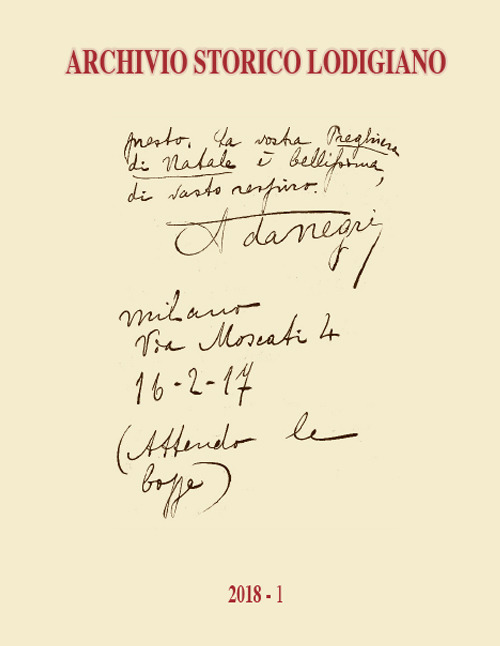 ARCHIVIO STORICO LODIGIANO
presto. La vostra Preghiera
di Natale è bellissima,
di vasto respiro.
Ada Negri
Milano
Via Moscati 4
16-2-17
(Attendo le
bozze)
2018 - 1